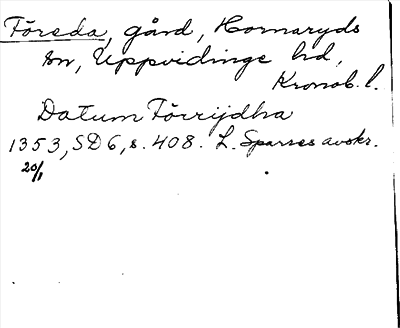 Föreda, gård, Hornaryds
sn, Uppvidinge hd,
Kronob. l.
Datum Förrijdha
1353, SD 6, s. 408. L. Sparres avskr.
20/1